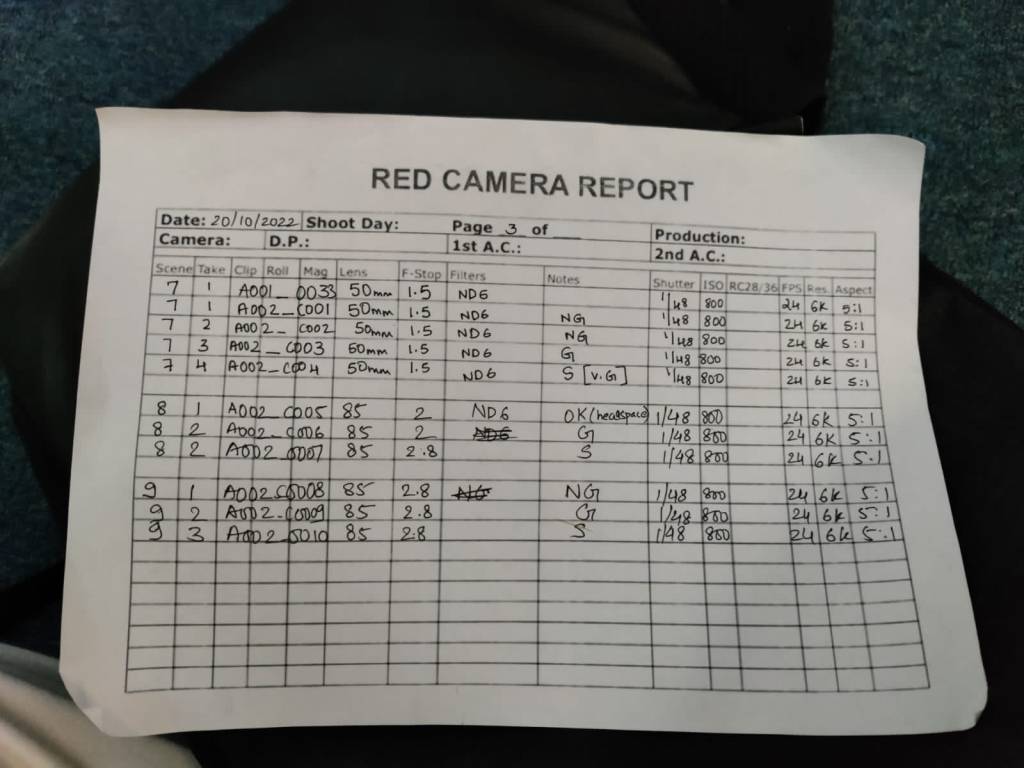 RED CAMERA REPORT
Date: 20/10/2022 Shoot Day: Page 3 of __ Production:
Camera: D.P.: 1st A.C.: 2nd A.C.:
Scene Take Clip Roll Mag Lens F-Stop Filters Notes Shutter ISO RC28/36 FPS Res. Aspect
7 1 A001_0033 50mm 1.5 ND6 1/48 800 24 6K 5:1
7 1 A002_C001 50mm 1.5 ND6 NG 1/48 800 24 6K 5:1
7 2 A002_C002 50mm 1.5 ND6 NG 1/48 800 24 6K 5:1
7 3 A002_C003 50mm 1.5 ND6 G 1/48 800 24 6K 5:1
7 4 A002_C004 50mm 1.5 ND6 S [V.G] 1/48 800 24 6K 5:1
8 1 A002_C005 85 2 ND6 OK (headspace) 1/48 800 24 6K 5:1
8 2 A002_C006 85 2 G 1/48 800 24 6K 5:1
8 2 A002_0007 85 2.8 S 1/48 800 24 6K 5:1
9 1 A002_C0008 85 2.8 NG 1/48 800 24 6K 5:1
9 2 A002_C0009 85 2.8 G 1/48 800 24 6K 5:1
9 3 A002_0010 85 2.8 S 1/48 800 24 6K 5:1